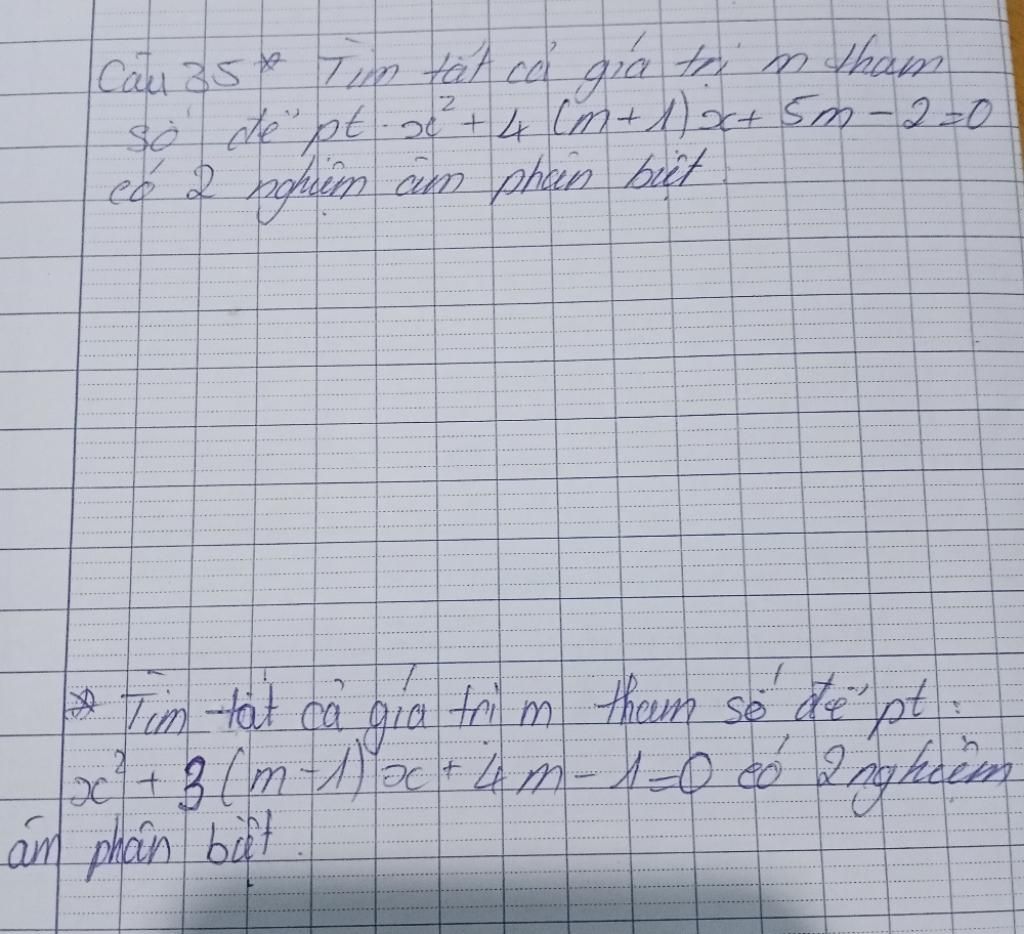 Câu 35 * Tìm tất cả giá trị m tham
số để pt x² + 4(m+1)x + 5m - 2 = 0
có 2 nghiệm âm phân biệt
* Tìm tất cả giá trị m tham số để pt :
x² + 3(m-1)x + 4m - 1 = 0 có 2 nghiệm
âm phân biệt.